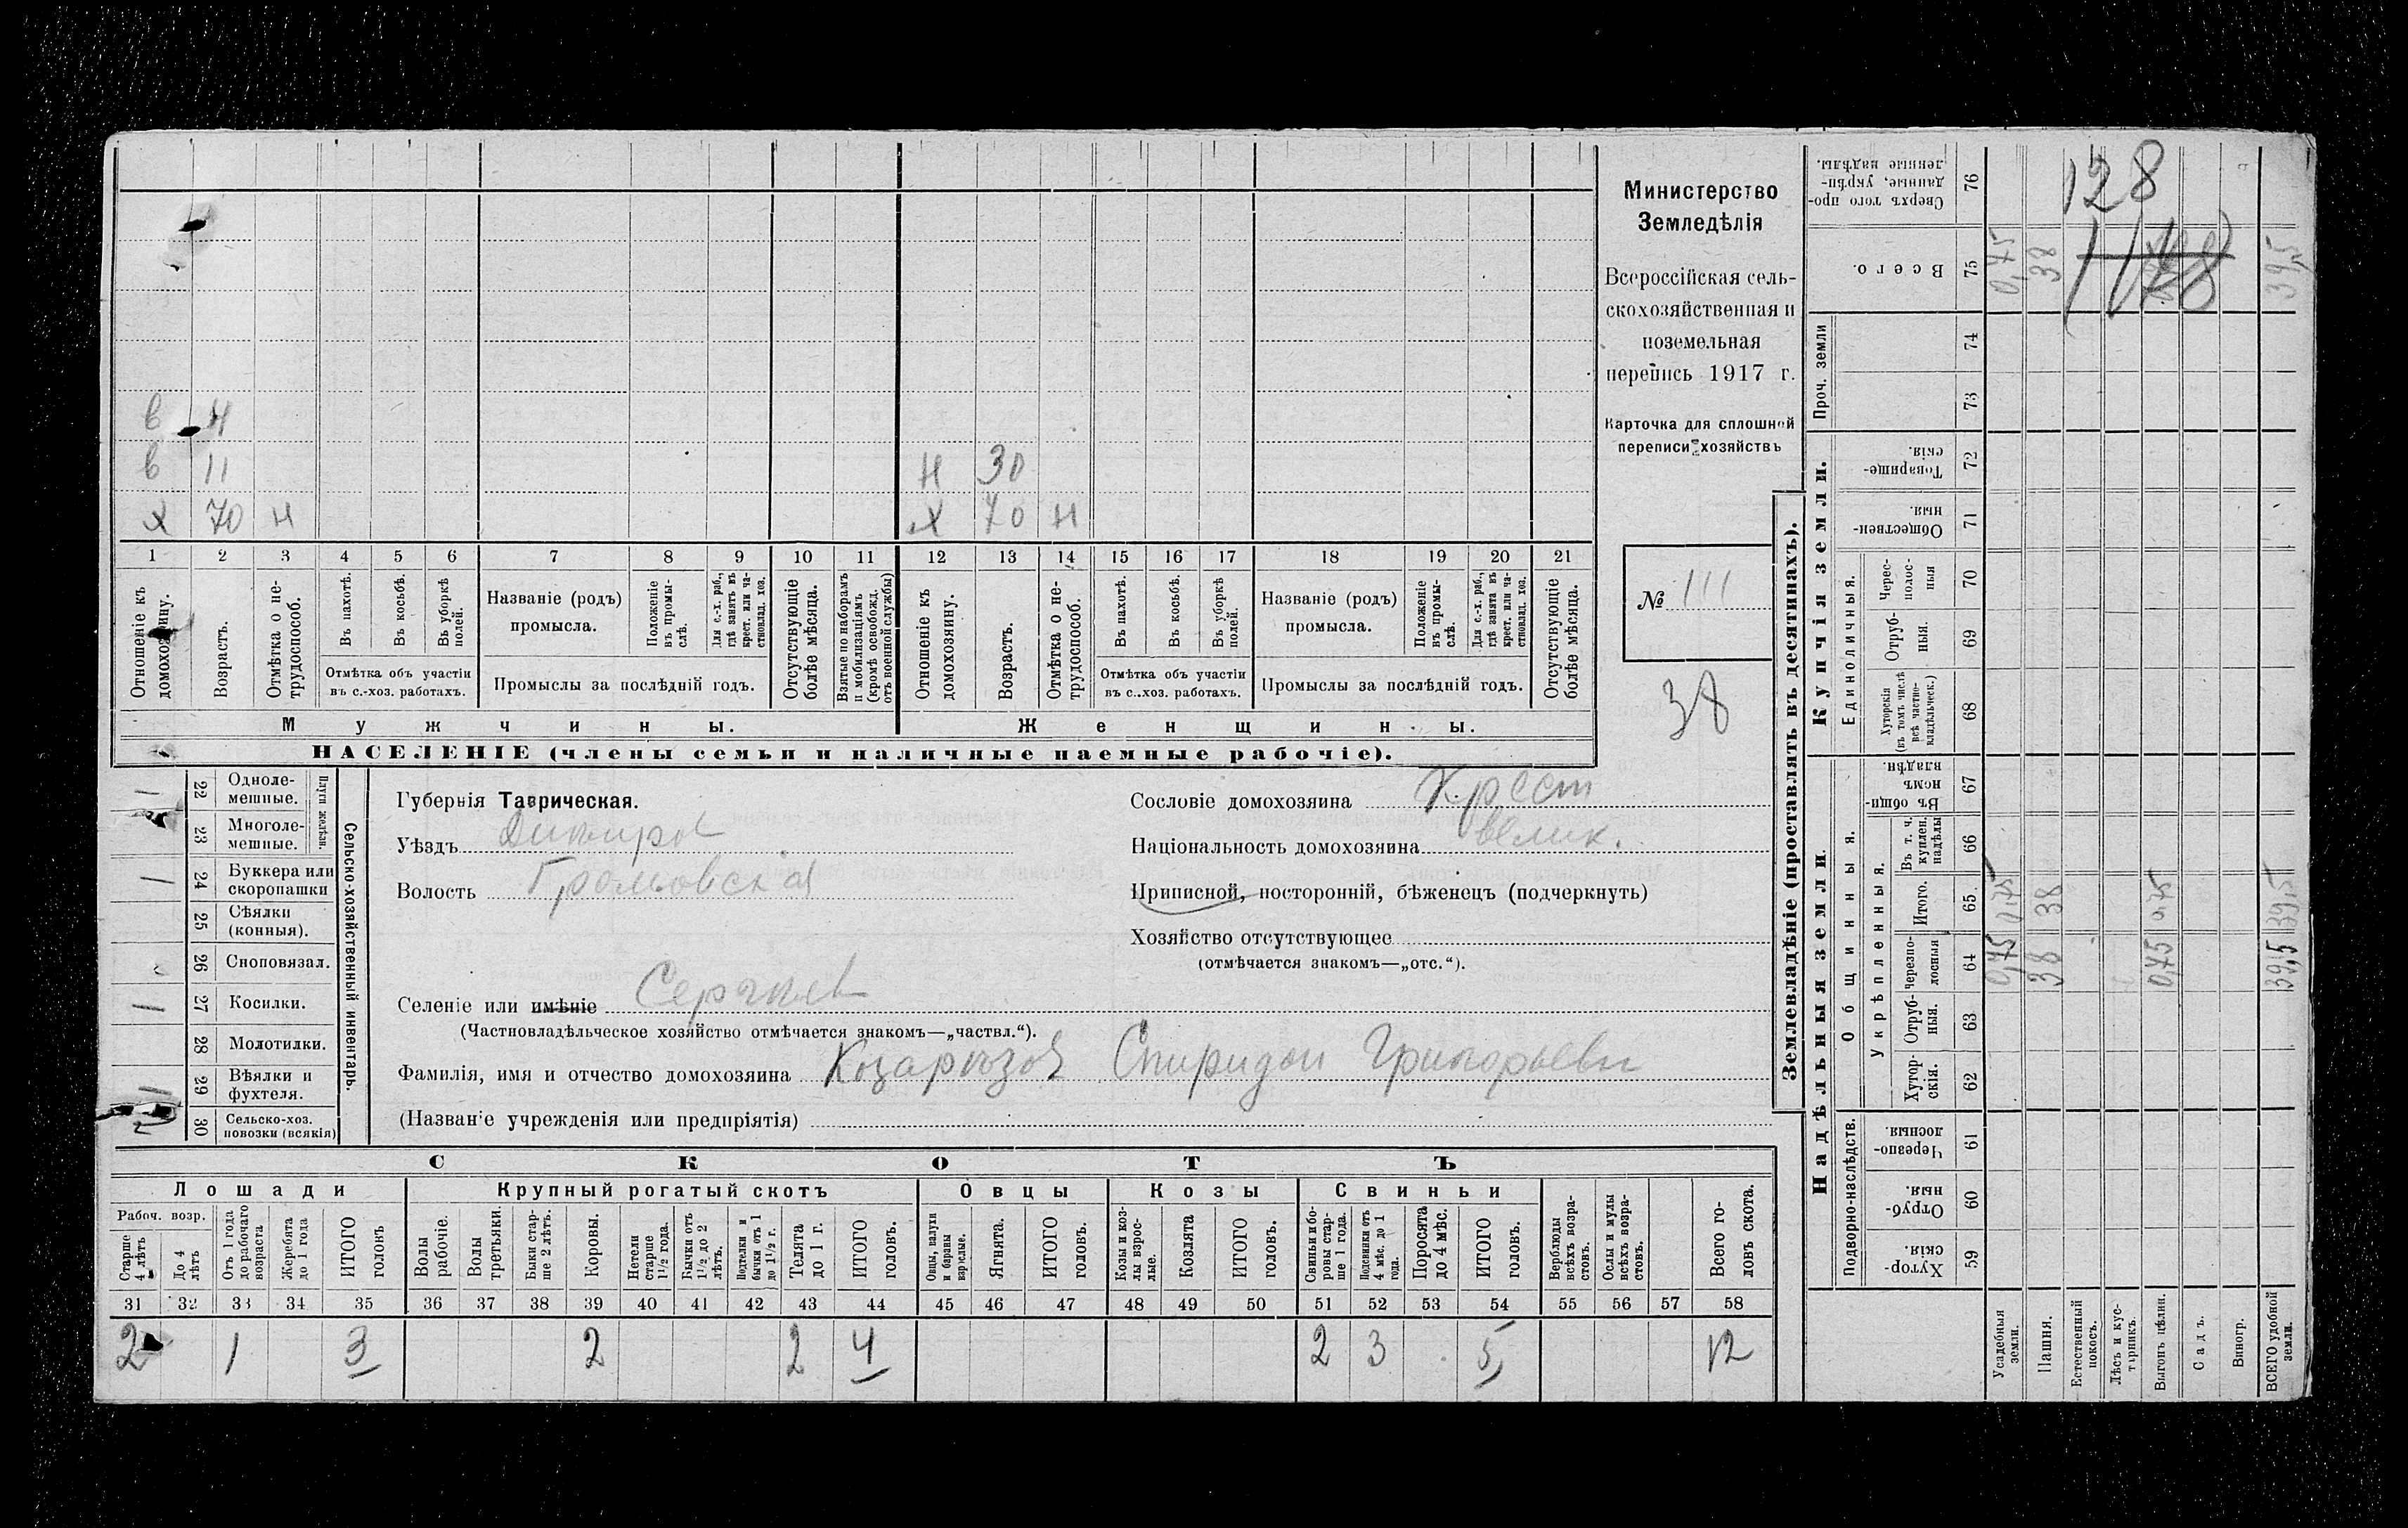 Министерство
Земледѣлія
Всероссійская сель-
скохозяйственная и
поземельная
перепись 1917 г.
Карточка для сплошной
переписи хозяйствъ
№ 111
38
в 4
в 11 н 30
х 70 н х 70 н
1 2 3 4 5 6 7 8 9 10 11 12 13 14 15 16 17 18 19 20 21
Отношеніе къ домохозяину.
Возрастъ.
Отмѣтка о не-трудоспособ.
Въ пахотѣ.
Въ косьбѣ.
Въ уборкѣ полей.
Отмѣтка объ участіи
въ с.-хоз. работахъ.
Названіе (родъ)
промысла.
Положеніе въ промы-слѣ.
Для с.-х. раб., гдѣ занятъ въ крест. или ча-стновлад. хоз.
Промыслы за послѣдній годъ.
Отсутствующіе болѣе мѣсяца.
Взятые по наборамъ и мобилизаціямъ (кромѣ освобожд. отъ военной службы)
Отношеніе къ домохозяину.
Возрастъ.
Отмѣтка о не-трудоспособ.
Въ пахотѣ.
Въ косьбѣ.
Въ уборкѣ полей.
Отмѣтка объ участіи
въ с..хоз. работахъ.
Названіе (родъ)
промысла.
Положеніе въ промы-слѣ.
Для с.-х. раб., гдѣ занята въ крест. или ча-стновлад. хоз.
Промыслы за послѣдній годъ.
Отсутствующіе болѣе мѣсяца.
Мужчины.
Женщины.
НАСЕЛЕНІЕ (члены семьи и наличные наемные рабочіе).
Сельско-хозяйственный инвентарь.
Плуги желѣзн.
22 Одноле-мешные.
23 Многоле-мешные.
24 Буккера или скоропашки
25 Сѣялки (конныя).
26 Сноповязал.
27 Косилки.
28 Молотилки.
29 Вѣялки и фухтеля.
30 Сельско-хоз. повозки (всякія)
Губернія Таврическая.
Уѣздъ
Волость Громовская
Селеніе или имѣніе
(Частновладѣльческое хозяйство отмѣчается знакомъ—„частвл.“).
Фамилія, имя и отчество домохозяина Спиридон Григорьевич
(Названіе учрежденія или предпріятія)
Сословіе домохозяина Крест
Національность домохозяина велик.
Приписной, посторонній, бѣженецъ (подчеркнуть)
Хозяйство отсутствующее
(отмѣчается знакомъ—„отс.“).
СКОТЪ
Лошади
Крупный рогатый скотъ
Овцы
Козы
Свиньи
Рабоч. возр.
Старше 4 лѣтъ
До 4 лѣтъ
Отъ 1 года до рабочаго возраста
Жеребята до 1 года
ИТОГО головъ
Волы рабочіе.
Волы третьяки.
Быки стар-ше 2 лѣтъ.
Коровы.
Нетели старше 1½ года.
Бычки отъ 1½ до 2 лѣтъ.
Подтелки и бычки отъ 1 до 1½ г.
Телята до 1 г.
ИТОГО головъ.
Овцы, валухи и бараны взрослые.
Ягнята.
ИТОГО головъ.
Козы и коз-лы взрос-лые.
Козлята
ИТОГО головъ.
Свиньи и бо-ровы стар-ше 1 года.
Подсвинки отъ 4 мѣс. до 1 года.
Поросята до 4 мѣс.
ИТОГО головъ.
Верблюды всѣхъ возра-стовъ.
Ослы и мулы всѣхъ возра-стовъ.
Всего го-ловъ скота.
31 32 33 34 35 36 37 38 39 40 41 42 43 44 45 46 47 48 49 50 51 52 53 54 55 56 57 58
2 1 3 2 2 4 2 3 5 12
Землевладѣніе (проставлять въ десятинахъ).
Купчія земли.
Надѣльныя земли.
Сверхъ того про-данные, укрѣп-ленные надѣлы. 76
128
Всего. 75 0,75 38 39,5
Проч. земли
74
73
Товарище-скія. 72
Обществен-ныя. 71
Единоличныя.
Черес-полос-ныя 70
Отруб-ныя. 69
Хуторскія (въ томъ числѣ всѣ частно-владѣльческ.) 68
Общинныя.
Въ общи-номъ владѣн. 67
Укрѣпленныя.
Въ т. ч. куплен. надѣлы 66
Итого. 65 0,75 38 0,75 39,5
Черезпо-лосныя 64 0,75 38 0,75 39,5
Отруб-ныя. 63
Хутор-скія. 62
Подворно-наслѣдств.
Черезпо-лосныя. 61
Отруб-ныя. 60
Хутор-скія. 59
Усадебныя земли.
Пашня.
Естественный покосъ.
Лѣсъ и кус-тарникъ.
Выгонъ цѣлин.
Садъ.
Виногр.
ВСЕГО удобной земли.